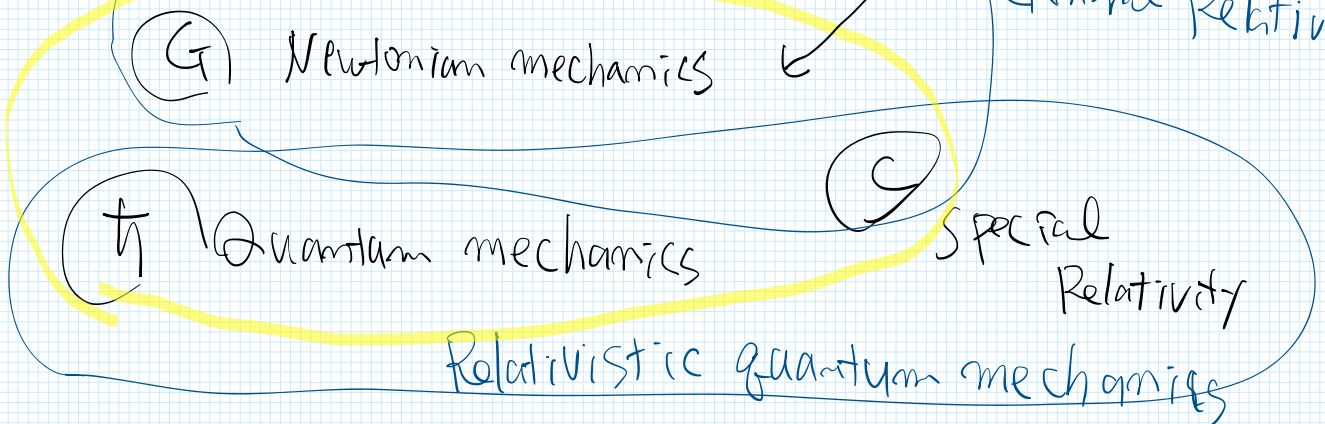 G Newtonian mechanics
ħ Quantum mechanics
C
Special
Relativity
Relativistic quantum mechanics